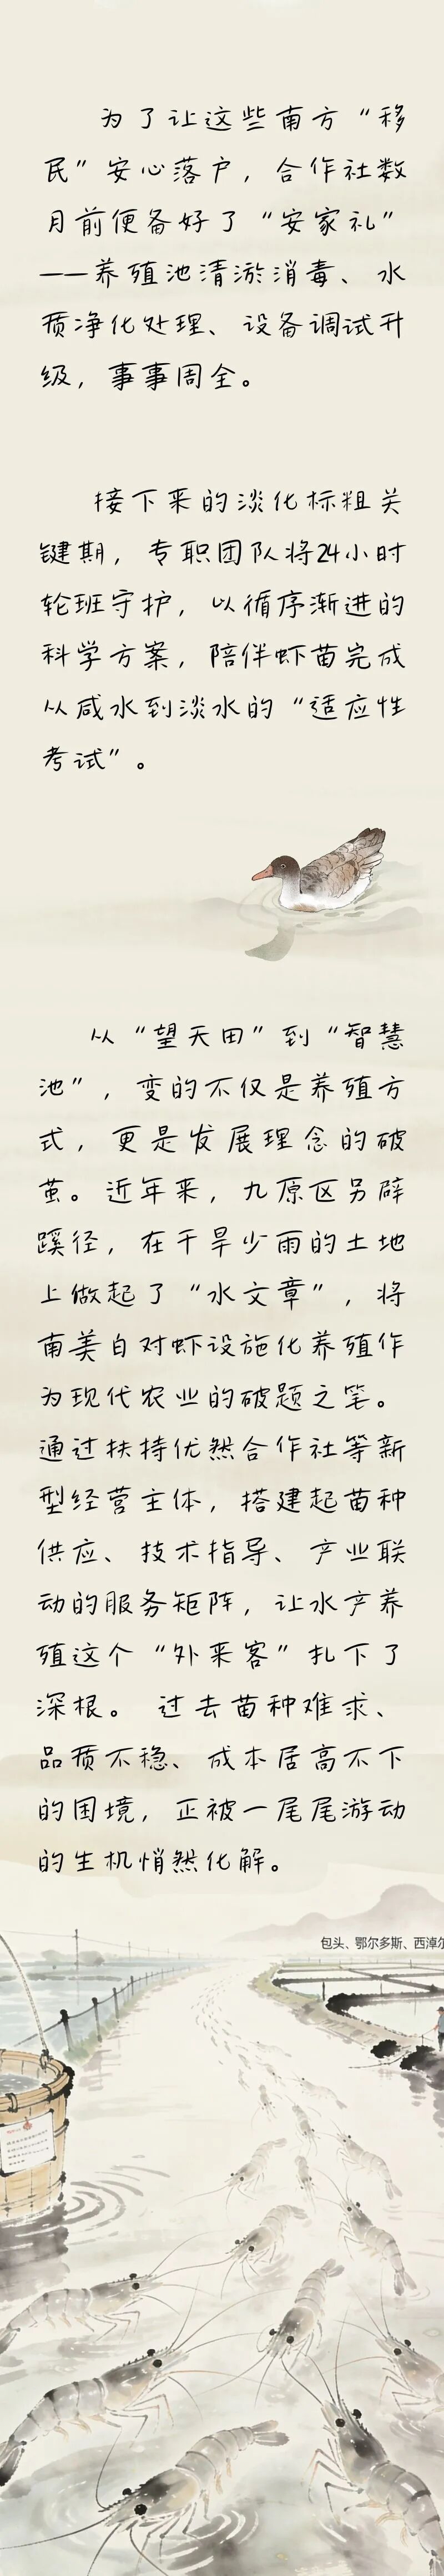 为了让这些南方“移
民”安心落户，合作社数
月前便备好了“安家礼”
——养殖池清淤消毒、水
质净化处理、设备调试升
级，事事周全。
接下来的淡化标粗关
键期，专职团队将24小时
轮班守护，以循序渐进的
科学方案，陪伴虾苗完成
从咸水到淡水的“适应性
考试”。
从“望天田”到“智慧
池”，变的不仅是养殖方
式，更是发展理念的破
茧。近年来，九原区另辟
蹊径，在干旱少雨的土地
上做起了“水文章”，将
南美白对虾设施化养殖作
为现代农业的破题之笔。
通过扶持优然合作社等新
型经营主体，搭建起苗种
供应、技术指导、产业联
动的服务矩阵，让水产养
殖这个“外来客”扎下了
深根。 过去苗种难求、
品质不稳、成本居高不下
的困境，正被一尾尾游动
的生机悄然化解。
包头、鄂尔多斯、西淖尔